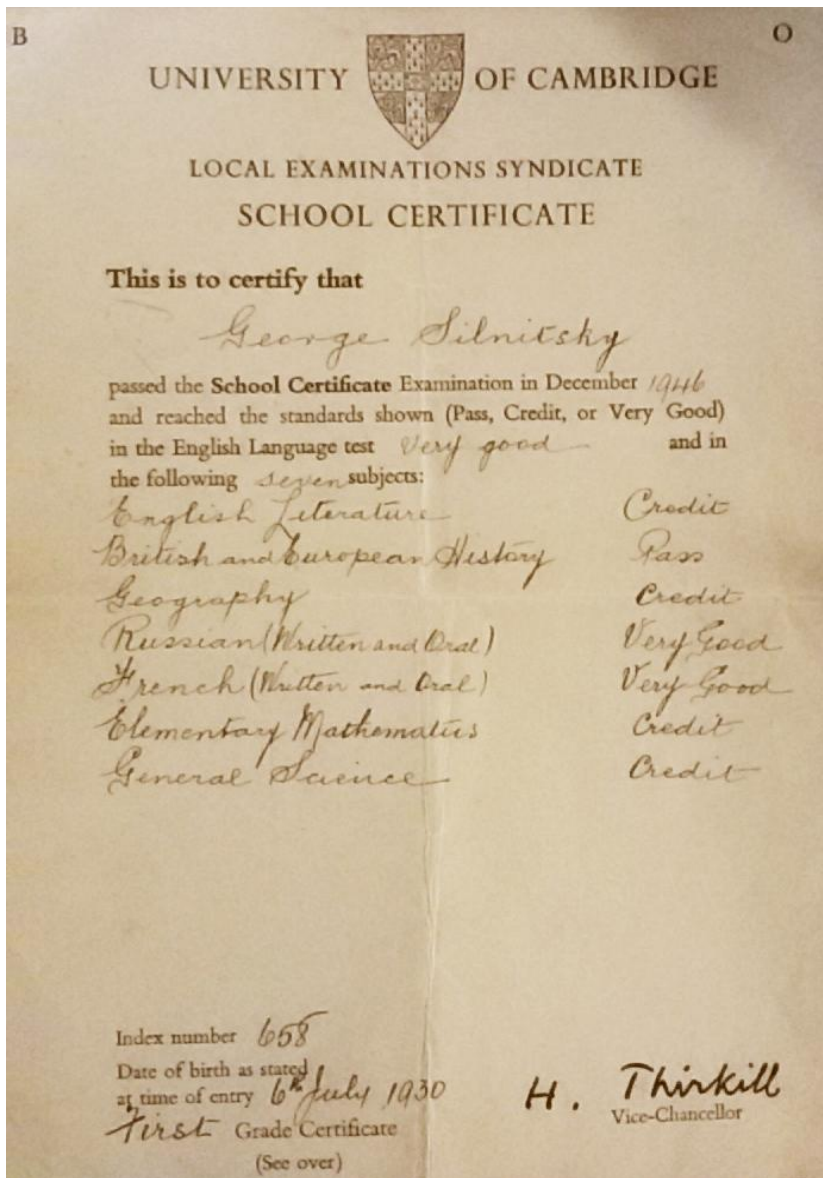 B O
UNIVERSITY OF CAMBRIDGE
LOCAL EXAMINATIONS SYNDICATE
SCHOOL CERTIFICATE
This is to certify that
George Silnitsky
passed the School Certificate Examination in December 1946
and reached the standards shown (Pass, Credit, or Very Good)
in the English Language test Very good and in
the following seven subjects:
English Literature Credit
British and European History Pass
Geography Credit
Russian (Written and Oral) Very Good
French (Written and Oral) Very Good
Elementary Mathematics Credit
General Science Credit
Index number 658
Date of birth as stated
at time of entry 6th July 1930
First Grade Certificate
(See over)
H. Thirkill
Vice-Chancellor